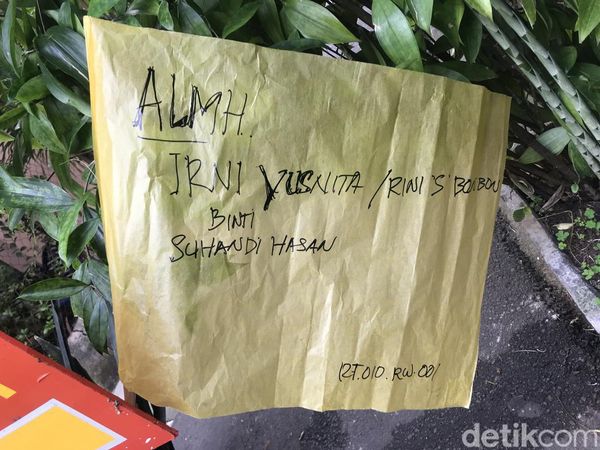 ALMH.
IRNI YUSNITA / RINI 'S' BONBON
BINTI
SUHANDI HASAN
RT.010.RW.001
detikcom